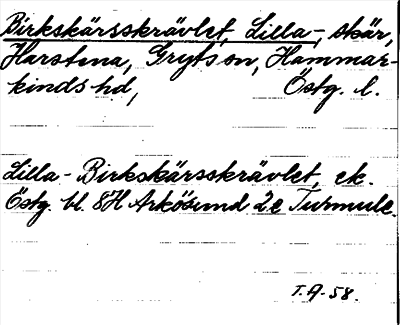 Birkskärsskrävlet, Lilla-, skär,
Harstena, Gryts sn, Hammar-
kinds hd, Östg. l.
Lilla- Birkskärsskrävlet, ek.
Östg. bl. 8H Arkösund 2e Turmule.
T.A-58.